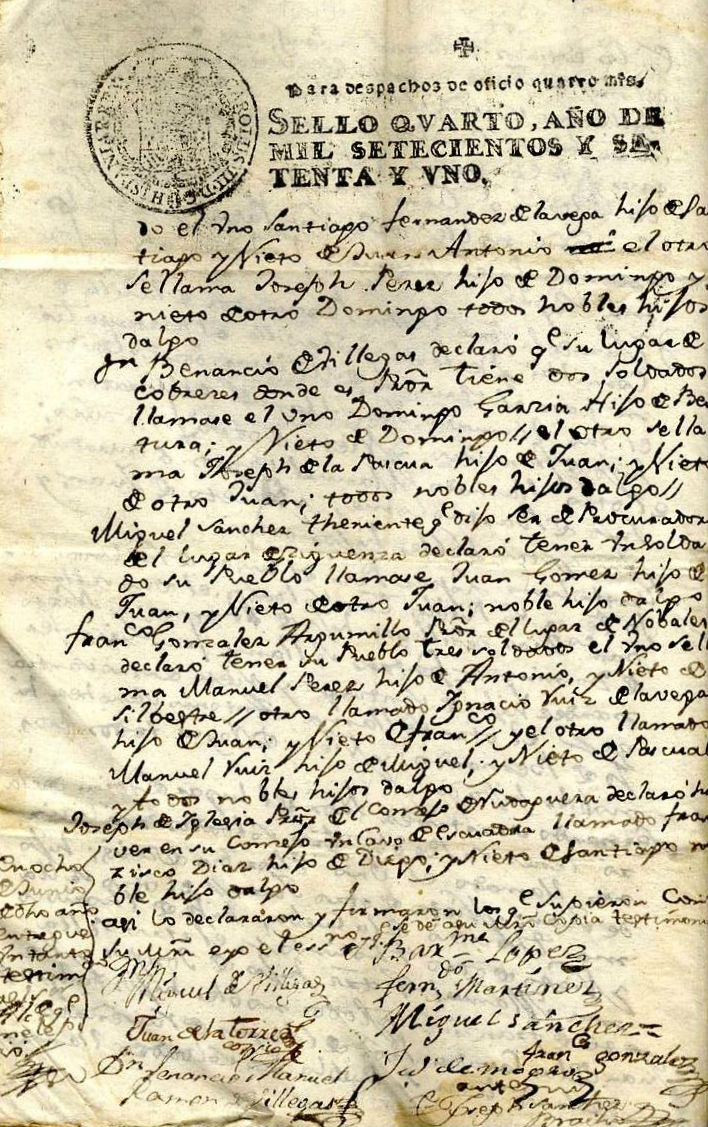 Para despachos de oficio quatro mrs.
SELLO QVARTO, AÑO DE
MIL SETECIENTOS Y SE-
TENTA Y VNO.
CAROLUS III D G HISPANIAR REX
do el Vno Santiago fernandez de la vega hijo de San
tiago y Nieto de Juan Antonio el otro
se llama Joseph Perez hijo de Domingo y
nieto de otro Domingo todos nobles hijos
dalgo
Dn Benancio de Villegas declaró qe su lugar de
Cobreces donde es Rór tiene dos soldados
llamase el Vno Domingo Garzia Hijo de Be
tura; y Nieto de Domingo// el otro se lla
ma Joseph de la Pascua hijo de Juan; y Nieto
de otro Juan; todos nobles hijos dalgo//
Miguel Sanchez theniente qe dijo ser de Procurador
del lugar de Ziguenza declaró tener Vn Solda
do su Pueblo llamase Juan Gomez hijo de
Juan, y Nieto de otro Juan; noble hijo dalgo
franco Gonzalez Argumillo Rór del lugar de Nobales
declaró tener su Pueblo tres soldados el Vno se ll
ma Manuel Perez hijo de Antonio, y Nieto de
Silbestre// otro llamado Ignacio Ruiz de la vega
hijo de Juan; y Nieto de franco// y el otro llamado
Manuel Ruiz hijo de Miguel; y Nieto de Pascual
y todos nobles hijos dalgo
Joseph de Iglesia Rór del Conzejo de Rudaguera declaró ha
ver en su Conzejo Vn Cavo de Escuadra llamado fran
zisco Diaz hijo de Diego, y Nieto de Santiago no
ble hijo dalgo
asi lo declararon y firmaron los qe supieron Con
su mrd e yo el ess no
copia testimonio
En ocho
de Junio
de dho año
entregue
Vn tanto
testim
Barme Lopez
Manuel de Villegas
ferndo Martinez
Miguel Sanchez
Juan de la torre
franco gonzalez
Dn Venancio Manuel
Ramon de Villegas
ante mi
Joseph Sanchez